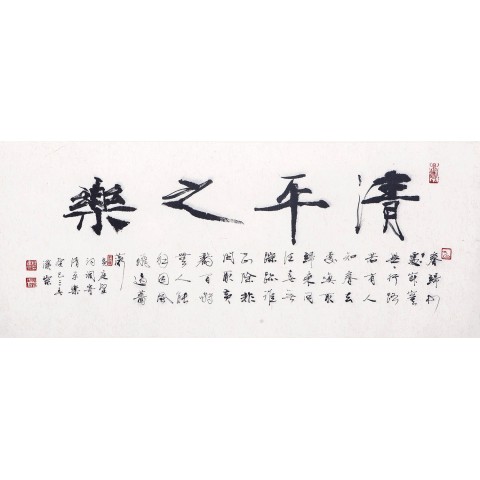 清平之樂
春歸何
處寂寞
無行路
若有人
知春去
處喚取
歸來同
住春無
蹤跡誰
知除非
問取黃
鸝百囀
無人能
解因風
飛過薔
薇
黃庭堅
詞調寄
清平樂
癸巳之春